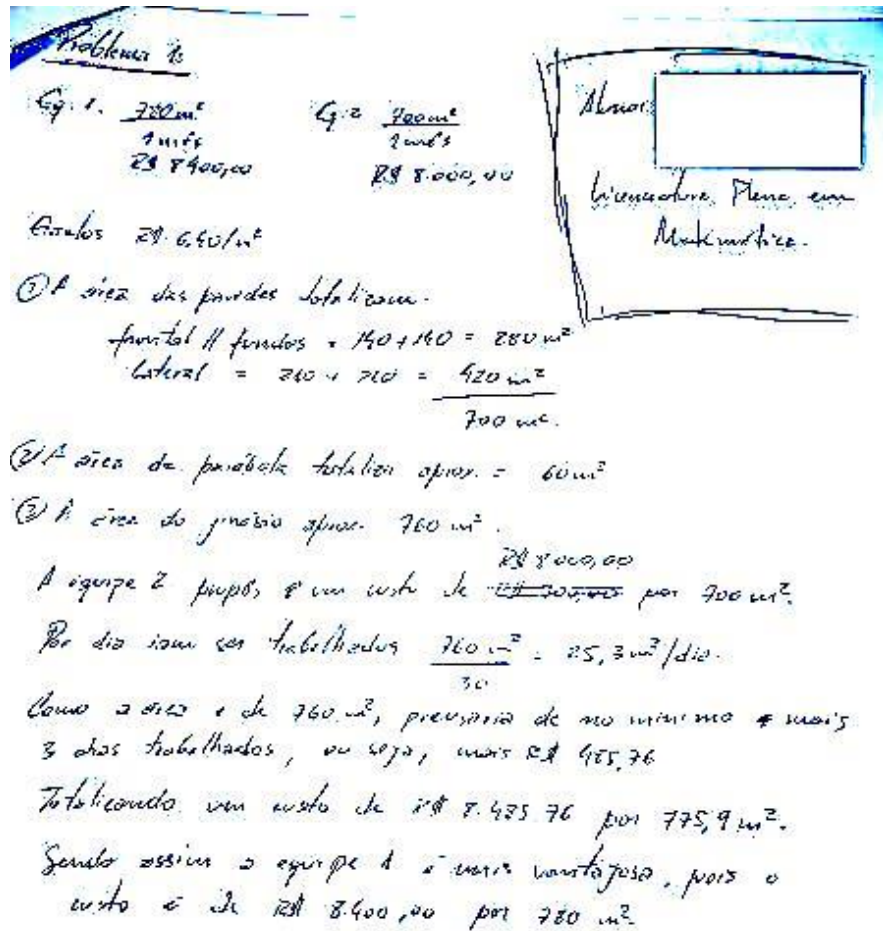 Problema 1:
Eq. 1. 780 m²
1 mês
R$ 8400,00
Eq. 2 700 m²
1 mês
R$ 8.000,00
Aluno:
Licenciatura Plena em
Matemática.
R$ 6,40/m²
① A área das paredes totalizam.
frontal // fundos = 140 + 140 = 280 m²
lateral = 210 + 210 = 420 m²
700 m².
② A área da parábola totaliza aprox. = 60 m²
③ A área do ginásio aprox. 760 m².
R$ 8000,00
A equipe 2 propôs, um custo de por 700 m².
Por dia iam ser trabalhados 760 m² = 25,3 m²/dia.
30
Como a área é de 760 m², precisaria de no mínimo mais
3 dias trabalhados, ou seja, mais R$
Totalizando um custo de R$ por 775,9 m².
Sendo assim a equipe 1 é mais vantajosa, pois o
custo é de R$ 8.400,00 por 780 m²